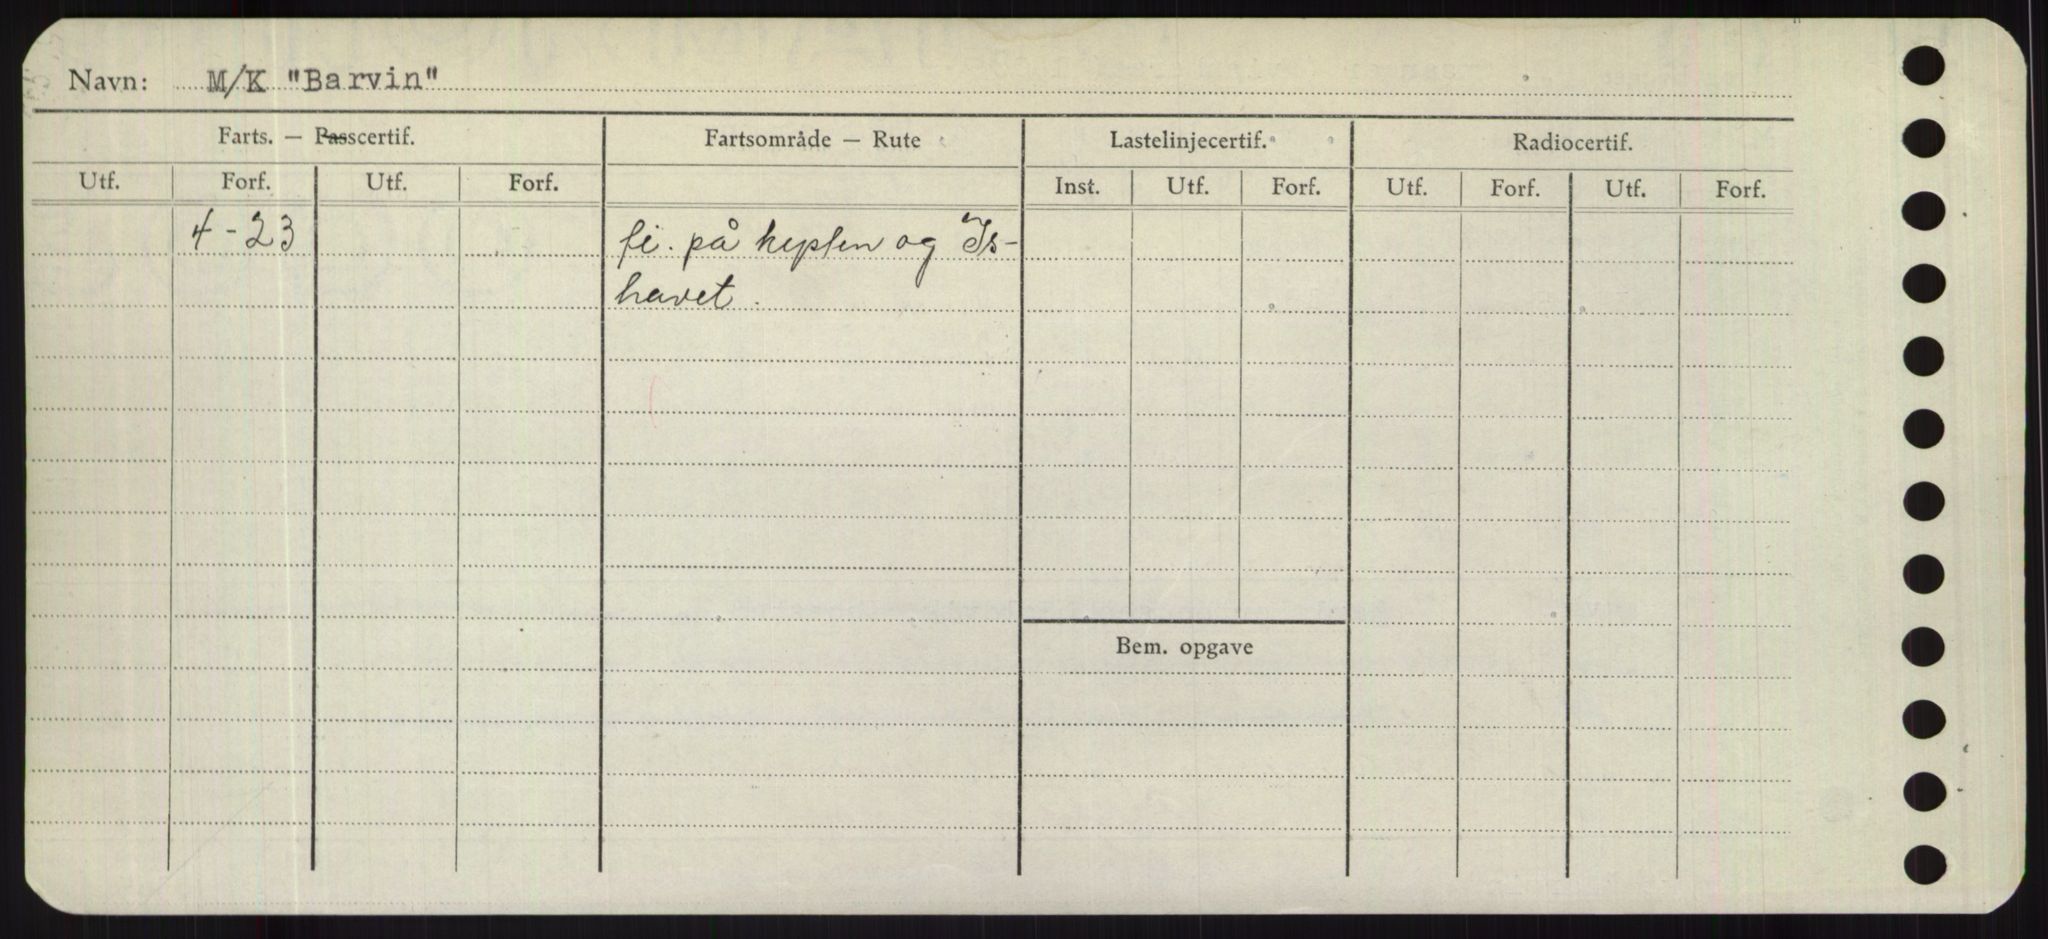 Navn: M/K "Barvin"
Farts. — Passcertif. Fartsområde — Rute Lastelinjecertif. Radiocertif.
Utf. Forf. Utf. Forf. Inst. Utf. Forf. Utf. Forf. Utf. Forf.
4-23 fi. på kysten og Is-
havet.
Bem. opgave